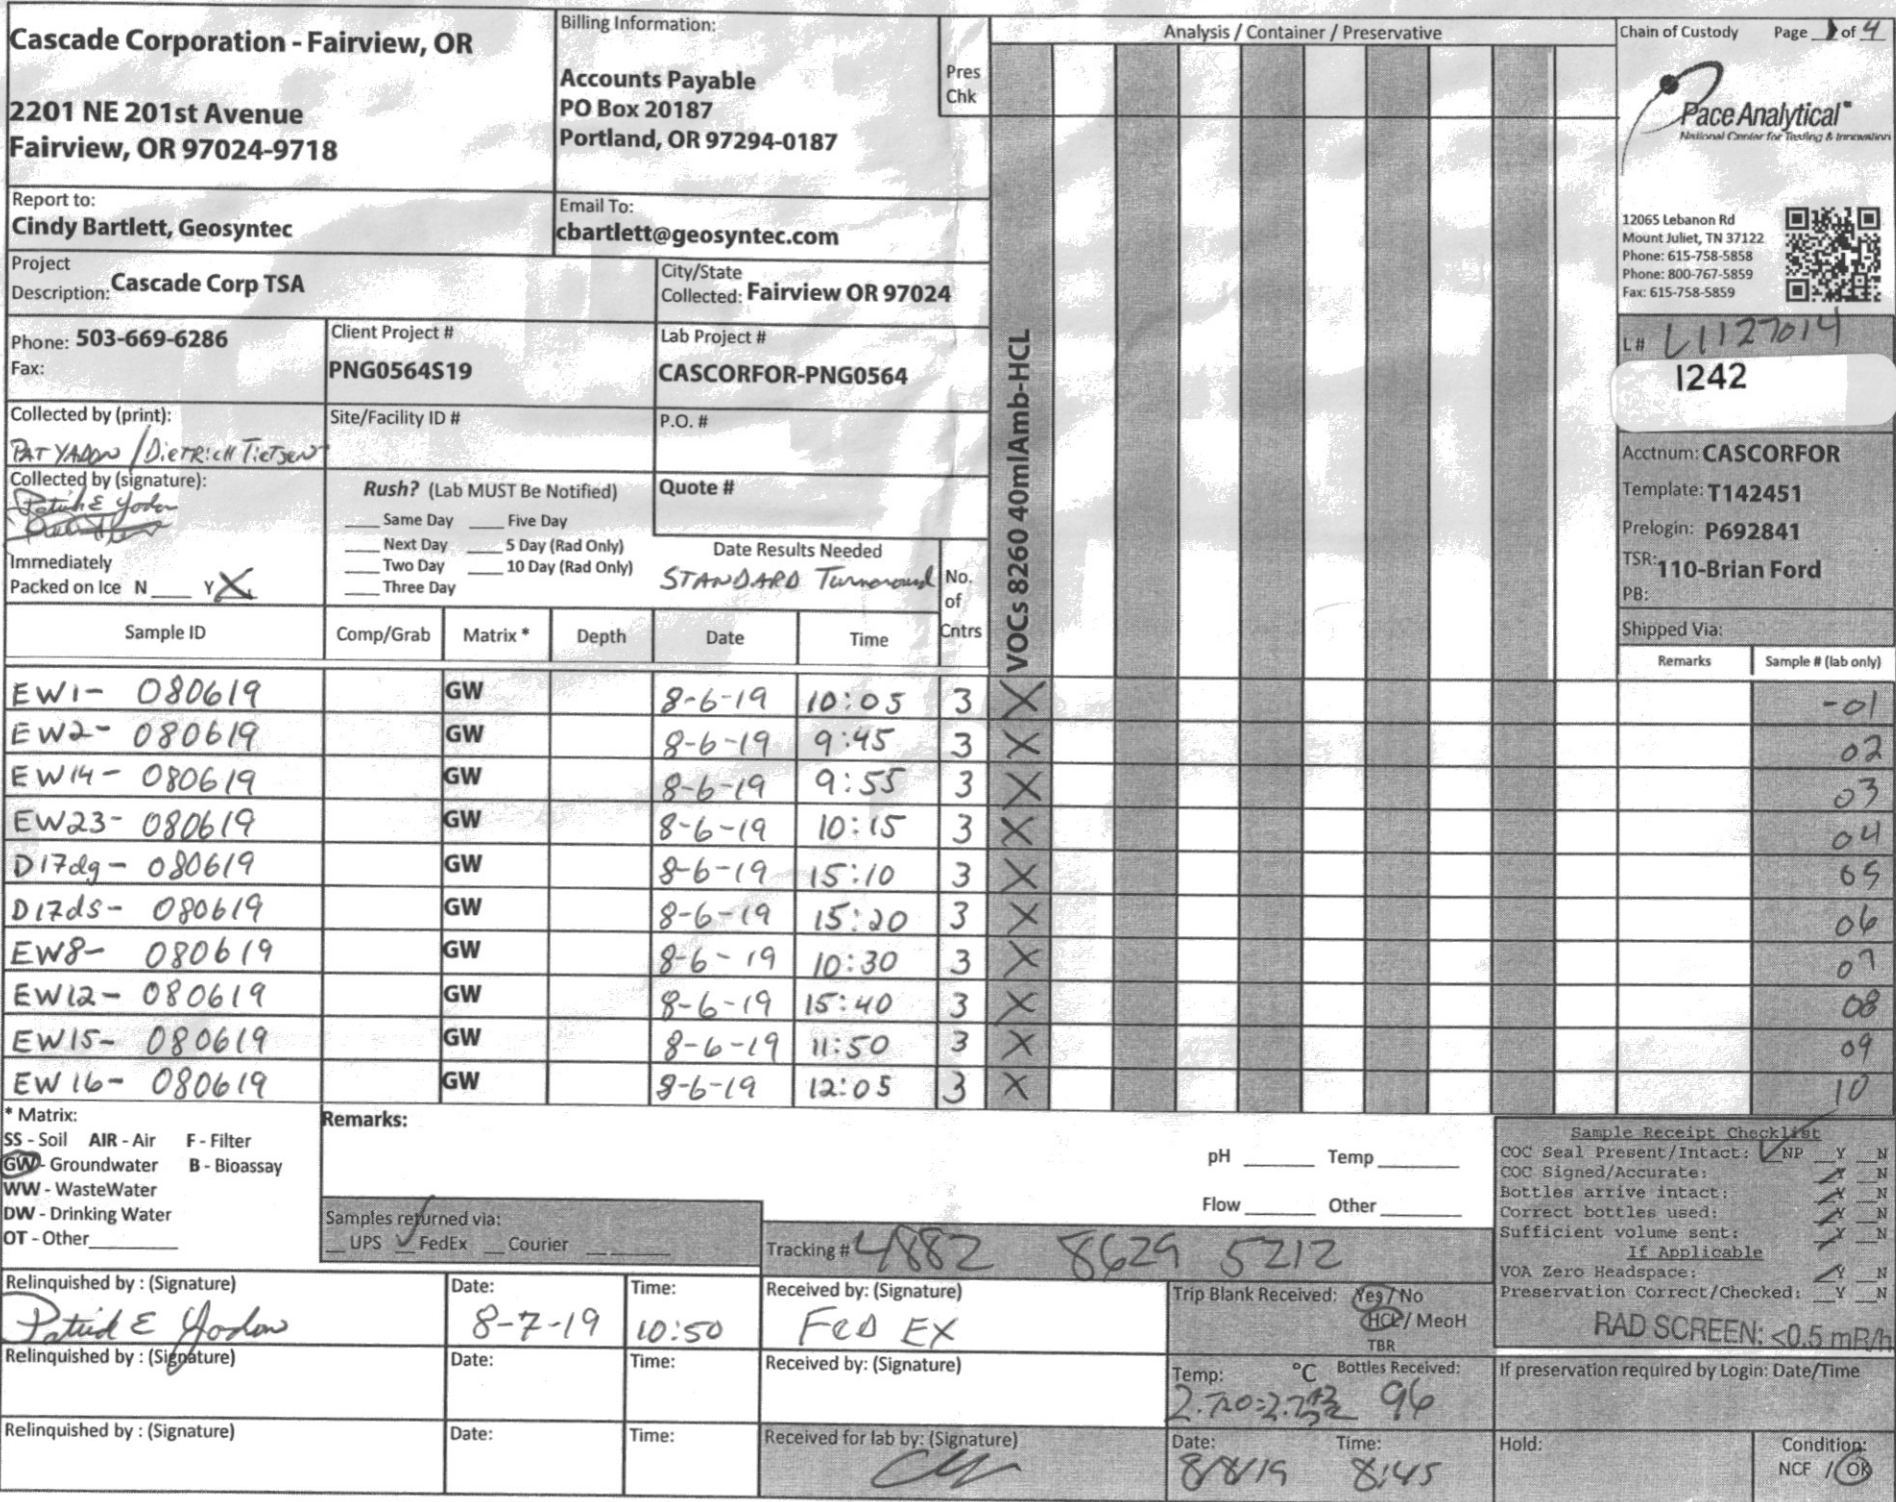 Cascade Corporation - Fairview, OR
2201 NE 201st Avenue
Fairview, OR 97024-9718
Billing Information:
Accounts Payable
PO Box 20187
Portland, OR 97294-0187
Pres
Chk
Analysis / Container / Preservative
Chain of Custody Page of 4
Pace Analytical
National Center for Testing & Innovation
12065 Lebanon Rd
Mount Juliet, TN 37122
Phone: 615-758-5858
Phone: 800-767-5859
Fax: 615-758-5859
Report to:
Cindy Bartlett, Geosyntec
Email To:
cbartlett@geosyntec.com
Project
Description: Cascade Corp TSA
City/State
Collected: Fairview OR 97024
Phone: 503-669-6286
Fax:
Client Project #
PNG0564S19
Lab Project #
CASCORFOR-PNG0564
L# L1127014
1242
Collected by (print):
PAT YADON / DIETRICH TIETSEN
Site/Facility ID #
P.O. #
Acctnum: CASCORFOR
Template: T142451
Prelogin: P692841
TSR: 110-Brian Ford
PB:
Shipped Via:
Collected by (signature):
Patrick E Yadon
Rush? (Lab MUST Be Notified)
___ Same Day ___ Five Day
___ Next Day ___ 5 Day (Rad Only)
___ Two Day ___ 10 Day (Rad Only)
___ Three Day
Quote #
Date Results Needed
STANDARD Turnaround
Immediately
Packed on Ice N ___ Y X
No.
of
Cntrs
VOCs 8260 40mlAmb-HCL
Sample ID Comp/Grab Matrix * Depth Date Time Remarks Sample # (lab only)
EW1- 080619 GW 8-6-19 10:05 3 X -01
EW2- 080619 GW 8-6-19 9:45 3 X 02
EW14- 080619 GW 8-6-19 9:55 3 X 03
EW23- 080619 GW 8-6-19 10:15 3 X 04
D17dg- 080619 GW 8-6-19 15:10 3 X 05
D17ds- 080619 GW 8-6-19 15:20 3 X 06
EW8- 080619 GW 8-6-19 10:30 3 X 07
EW12- 080619 GW 8-6-19 15:40 3 X 08
EW15- 080619 GW 8-6-19 11:50 3 X 09
EW16- 080619 GW 8-6-19 12:05 3 X 10
* Matrix:
SS - Soil AIR - Air F - Filter
GW - Groundwater B - Bioassay
WW - WasteWater
DW - Drinking Water
OT - Other
Remarks:
pH ______ Temp ______
Flow ______ Other ______
Samples returned via:
__ UPS ✓ FedEx __ Courier ______
Tracking # 4882 8629 5212
Sample Receipt Checklist
COC Seal Present/Intact: ✓ NP __Y __N
COC Signed/Accurate: __Y __N
Bottles arrive intact: __Y __N
Correct bottles used: __Y __N
Sufficient volume sent: __Y __N
If Applicable
VOA Zero Headspace: __Y __N
Preservation Correct/Checked: __Y __N
RAD SCREEN: <0.5 mR/h
Relinquished by : (Signature)
Patrick E Yadon
Date:
8-7-19
Time:
10:50
Received by: (Signature)
FED EX
Trip Blank Received: Yes / No
HCL / MeoH
TBR
Relinquished by : (Signature)
Date:
Time:
Received by: (Signature)
Temp: °C Bottles Received:
96
If preservation required by Login: Date/Time
Relinquished by : (Signature)
Date:
Time:
Received for lab by: (Signature)
Date:
8/8/19
Time:
8:45
Hold:
Condition:
NCF / OK